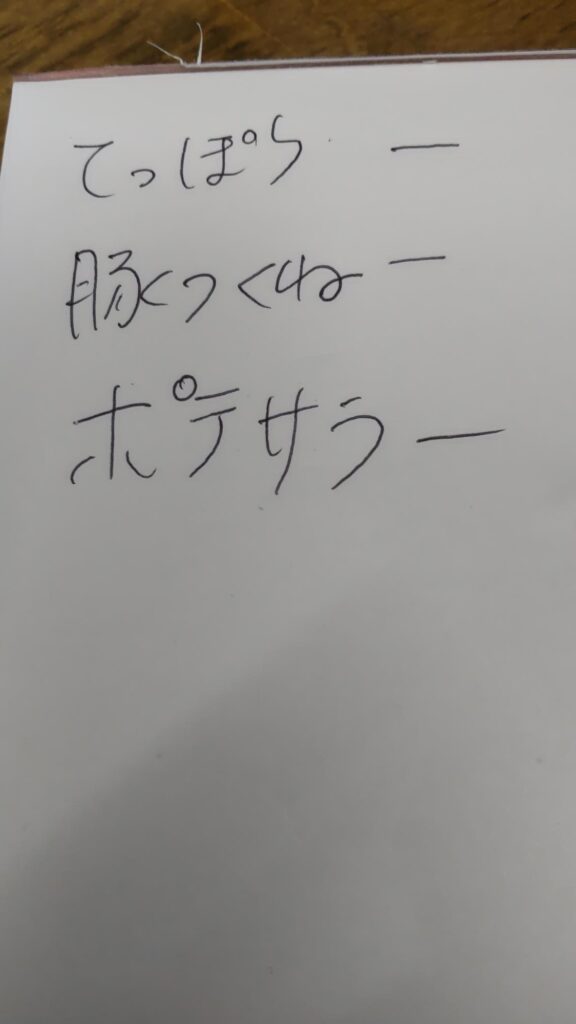 てっぽう 一
豚つくね 一
ポテサラ 一